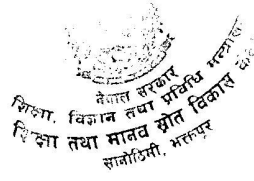 नेपाल सरकार
शिक्षा, विज्ञान तथा प्रविधि मन्त्रालय
शिक्षा तथा मानव स्रोत विकास
सानोठिमी, भक्तपुर